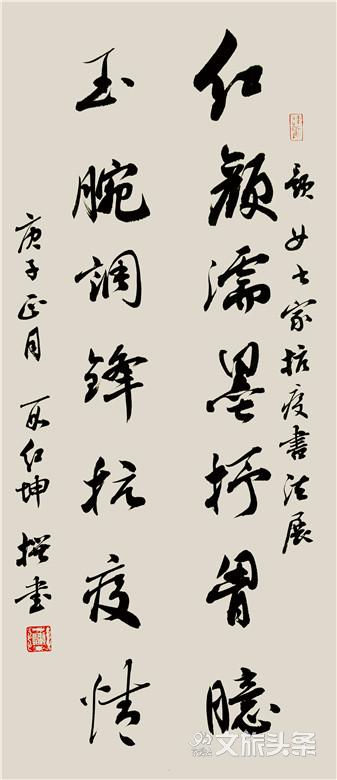 题女家抗疫書法展
红颜濡墨抒胷臆
玉腕調鋒抗疫情
庚子正月 红坤 撰书
文旅头条